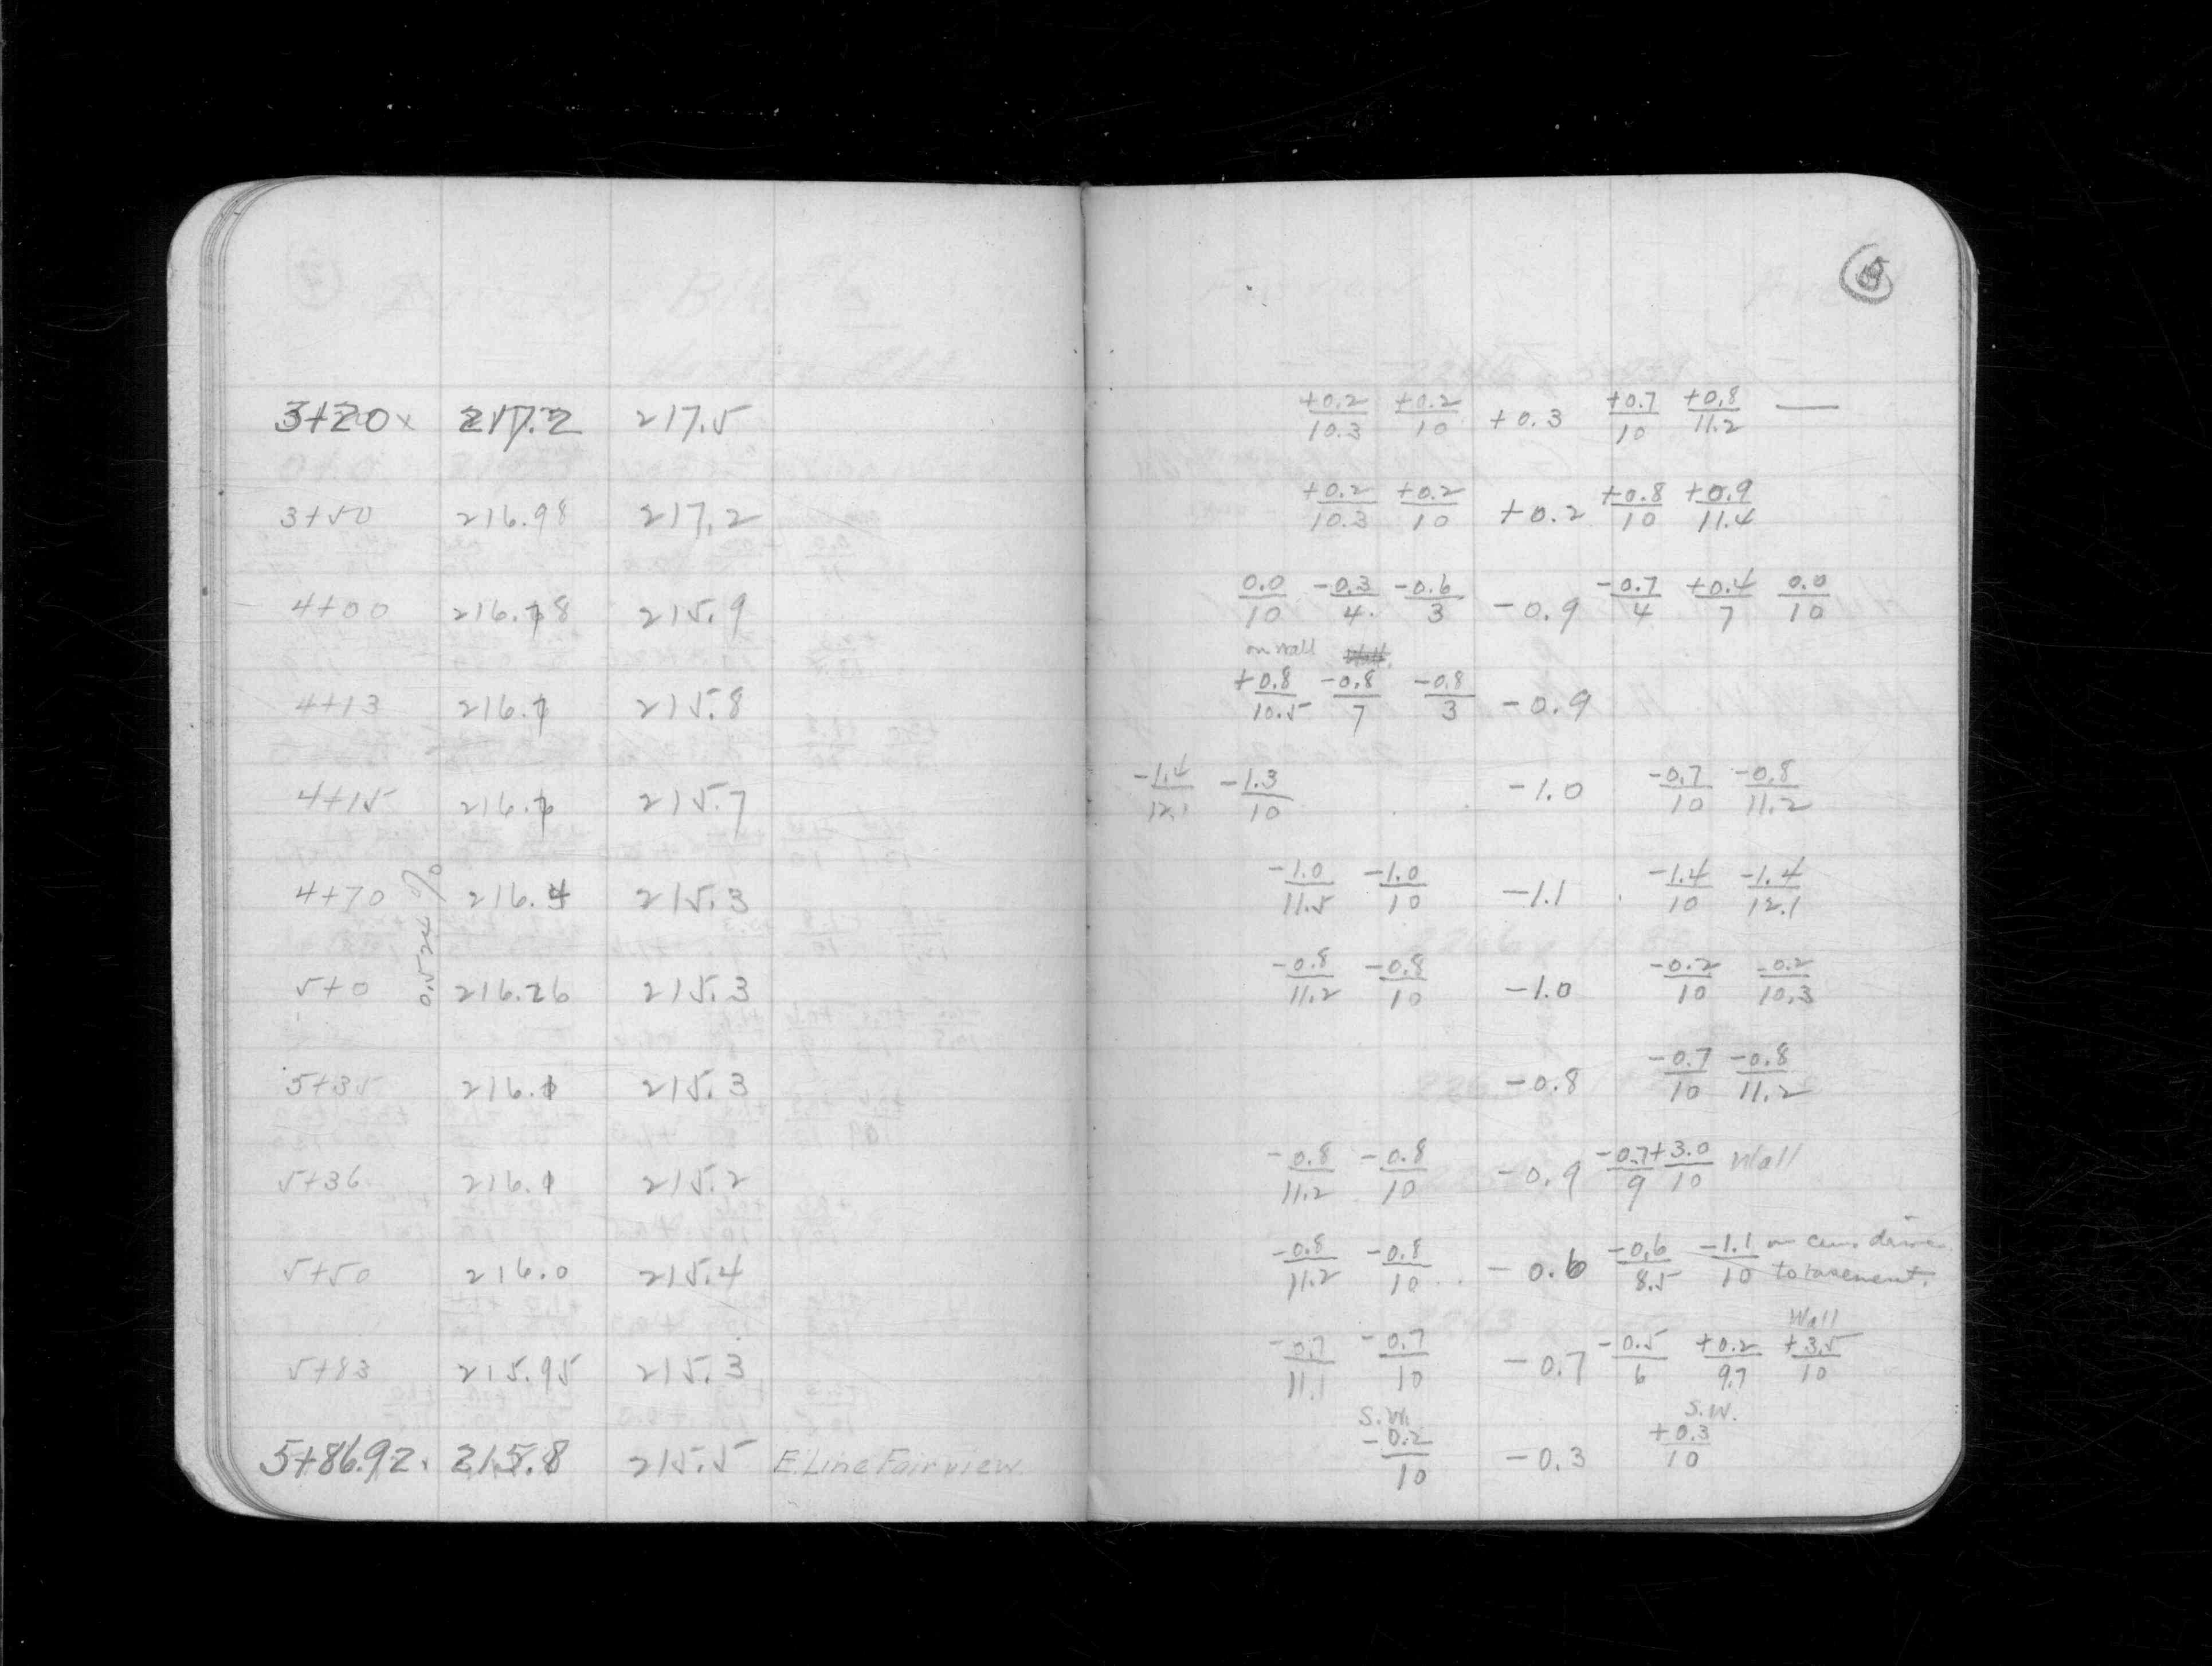 3+20 x 217.2 217.5
3+50 216.98 217.2
4+00 216.78 215.9
4+13 216.7 215.8
4+15 216.7 215.7
4+70 216.4 215.3
0.524 %
5+0 216.26 215.3
5+35 216.1 215.3
5+36 216.1 215.2
5+50 216.0 215.4
5+83 215.95 215.3
5+86.92. 215.8 215.5 E. Line Fairview.
5
+0.2/10.3 +0.2/10 +0.3 +0.7/10 +0.8/11.2 —
+0.2/10.3 +0.2/10 +0.2 +0.8/10 +0.9/11.4
0.0/10 -0.3/4. -0.6/3 -0.9 -0.7/4 +0.4/7 0.0/10
on wall
+0.8/10.5 -0.8/7 -0.8/3 -0.9
-1.4/12.1 -1.3/10 -1.0 -0.7/10 -0.8/11.2
-1.0/11.5 -1.0/10 -1.1 -1.4/10 -1.4/12.1
-0.8/11.2 -0.8/10 -1.0 -0.2/10 -0.2/10.3
-0.8 -0.7/10 -0.8/11.2
-0.8/11.2 -0.8/10 -0.9 -0.7/9 +3.0/10 Wall
-0.8/11.2 -0.8/10 -0.6 -0.6/8.5 -1.1/10 on cem. drive
to basement.
Wall
-0.7/11.1 -0.7/10 -0.7 -0.5/6 +0.2/9.7 +3.5/10
S.W. S.W.
-0.2/10 -0.3 +0.3/10